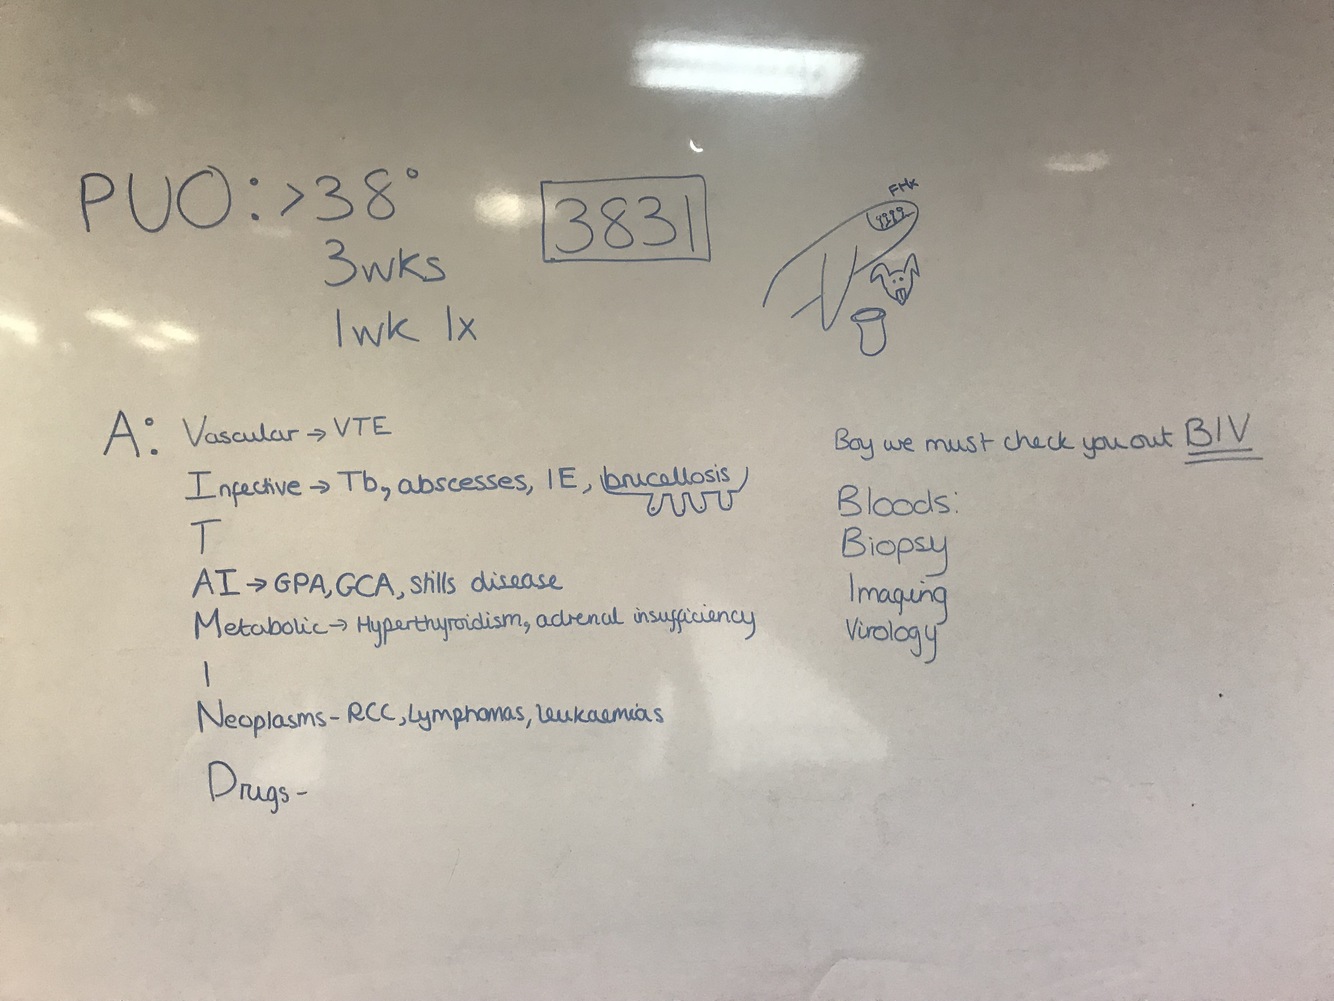 PUO: >38°
3wks
1wk 1x
3831
FHx
A: Vascular → VTE
Infective → Tb, abscesses, IE, brucellosis
T
AI → GPA, GCA, Stills disease
Metabolic → Hyperthyroidism, adrenal insufficiency
I
Neoplasms - RCC, Lymphomas, leukaemias
Drugs -
Boy we must check you out BIV
Bloods:
Biopsy
Imaging
Virology